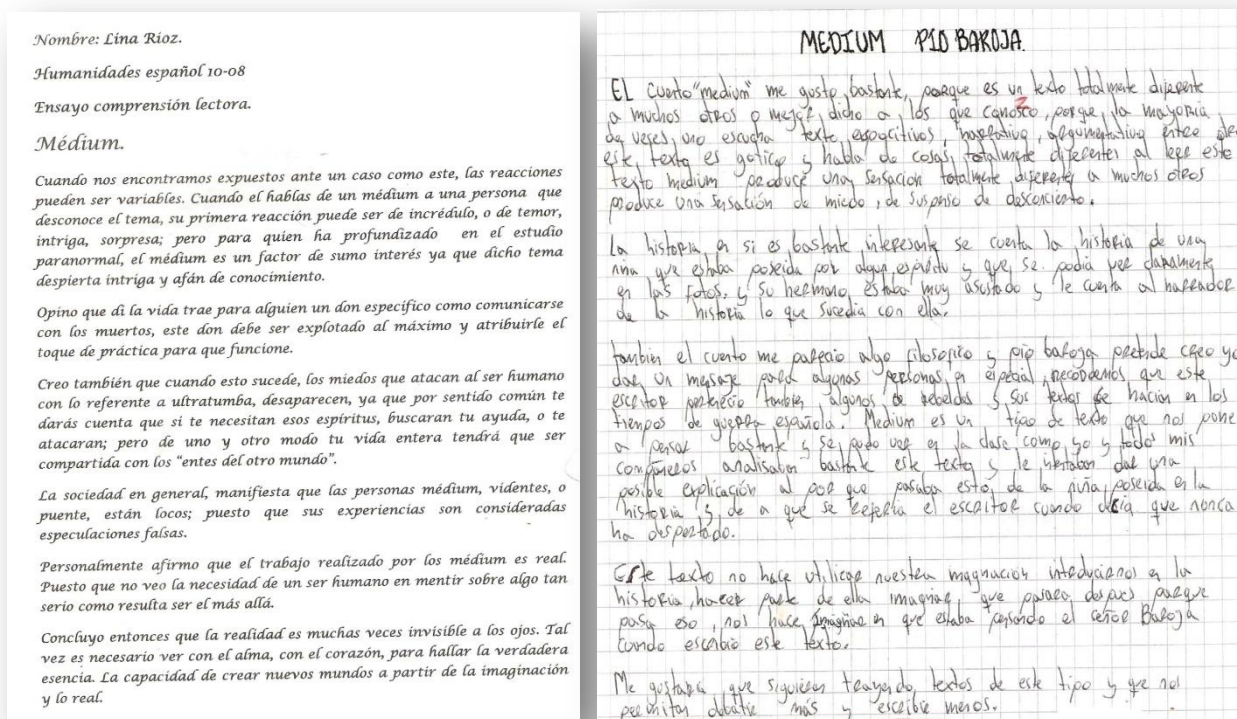 Nombre: Lina Rioz.
Humanidades español 10-08
Ensayo comprensión lectora.
Médium.
Cuando nos encontramos expuestos ante un caso como este, las reacciones
pueden ser variables. Cuando el hablas de un médium a una persona que
desconoce el tema, su primera reacción puede ser de incrédulo, o de temor,
intriga, sorpresa; pero para quien ha profundizado en el estudio
paranormal, el médium es un factor de sumo interés ya que dicho tema
despierta intriga y afán de conocimiento.
Opino que di la vida trae para alguien un don especifico como comunicarse
con los muertos, este don debe ser explotado al máximo y atribuirle el
toque de práctica para que funcione.
Creo también que cuando esto sucede, los miedos que atacan al ser humano
con lo referente a ultratumba, desaparecen, ya que por sentido común te
darás cuenta que si te necesitan esos espíritus, buscaran tu ayuda, o te
atacaran; pero de uno y otro modo tu vida entera tendrá que ser
compartida con los “entes del otro mundo”.
La sociedad en general, manifiesta que las personas médium, videntes, o
puente, están locos; puesto que sus experiencias son consideradas
especulaciones falsas.
Personalmente afirmo que el trabajo realizado por los médium es real.
Puesto que no veo la necesidad de un ser humano en mentir sobre algo tan
serio como resulta ser el más allá.
Concluyo entonces que la realidad es muchas veces invisible a los ojos. Tal
vez es necesario ver con el alma, con el corazón, para hallar la verdadera
esencia. La capacidad de crear nuevos mundos a partir de la imaginación
y lo real.
MEDIUM PIO BAROJA.
EL cuento "medium" me gusto bastante, porque es un texto totalmente diferente
a muchos otros o mejor dicho a los que conosco, porque la mayoria
de veses uno escucha texto narrativo, argumentativo entre
este texto es gotico y habla de cosas totalmente diferentes al leer este
texto medium produce una sensacion totalmente diferente a muchos otros
produce una sensación de miedo, de suspenso de desconcierto.
La historia en si es bastante interesante se cuenta la historia de una
niña que estaba poseida por algun espiritu y que se podia ver claramente
en las fotos, y su hermano estaba muy asustado y le cuenta al narrador
de la historia lo que sucedia con ella.
tambien el cuento me parecio algo filosofico y pio baroja pretende creo yo
dar un mensaje para algunas personas en especial, recordemos que este
escritor pertenecio tambien algunos de rebeldes y sus textos se hacian en los
tiempos de guerra española. Medium es un tipo de texto que nos pone
a pensar bastante y se pudo ver en la clase como yo y todos mis
compañeros analisaban bastante este texto y le intentaban dar una
posible explicación al por que pasaba esto, de la niña poseida en la
historia y de a que se referia el escritor cuando decia que nonca
ha despertado.
Este texto no hace utilizar nuestra imaginación introducirnos en la
historia, hacer parte de ella imaginar que pasara despues porque
pasa eso, nos hace imaginar en que estaba pensando el señor Baroja
cuando escribio este texto.
Me gustaria que siguieran trayendo textos de este tipo y que nos
permitan debatir más y escribir menos.